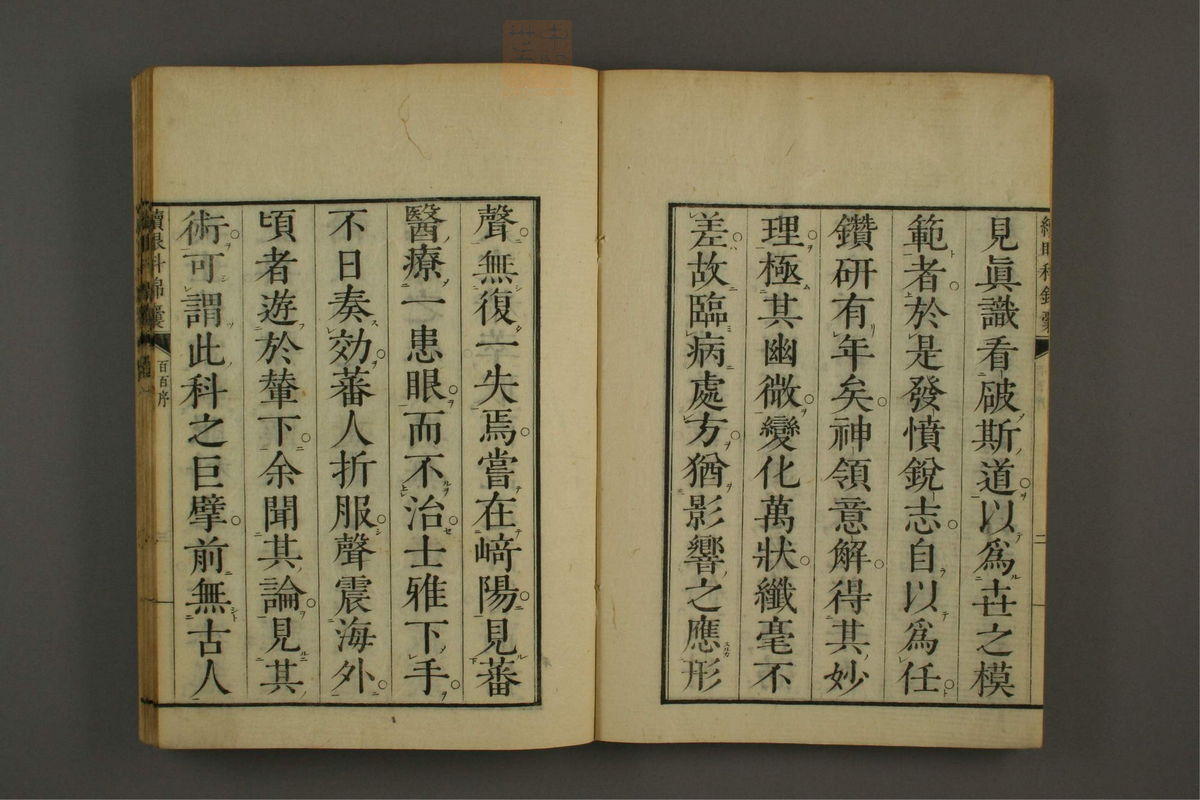 見眞識看破斯道以爲世之模
範者於是發憤銳志自以爲任
鑽研有年矣神領意解得其妙
理極其幽微變化萬狀纖毫不
差故臨病處方猶影響之應形
聲無復一失焉嘗在﨑陽見蕃
醫療一患眼而不治士雅下手
不日奏効蕃人折服聲震海外
頃者遊於輦下余聞其論見其
術可謂此科之巨擘前無古人
續眼科錦囊
百百序